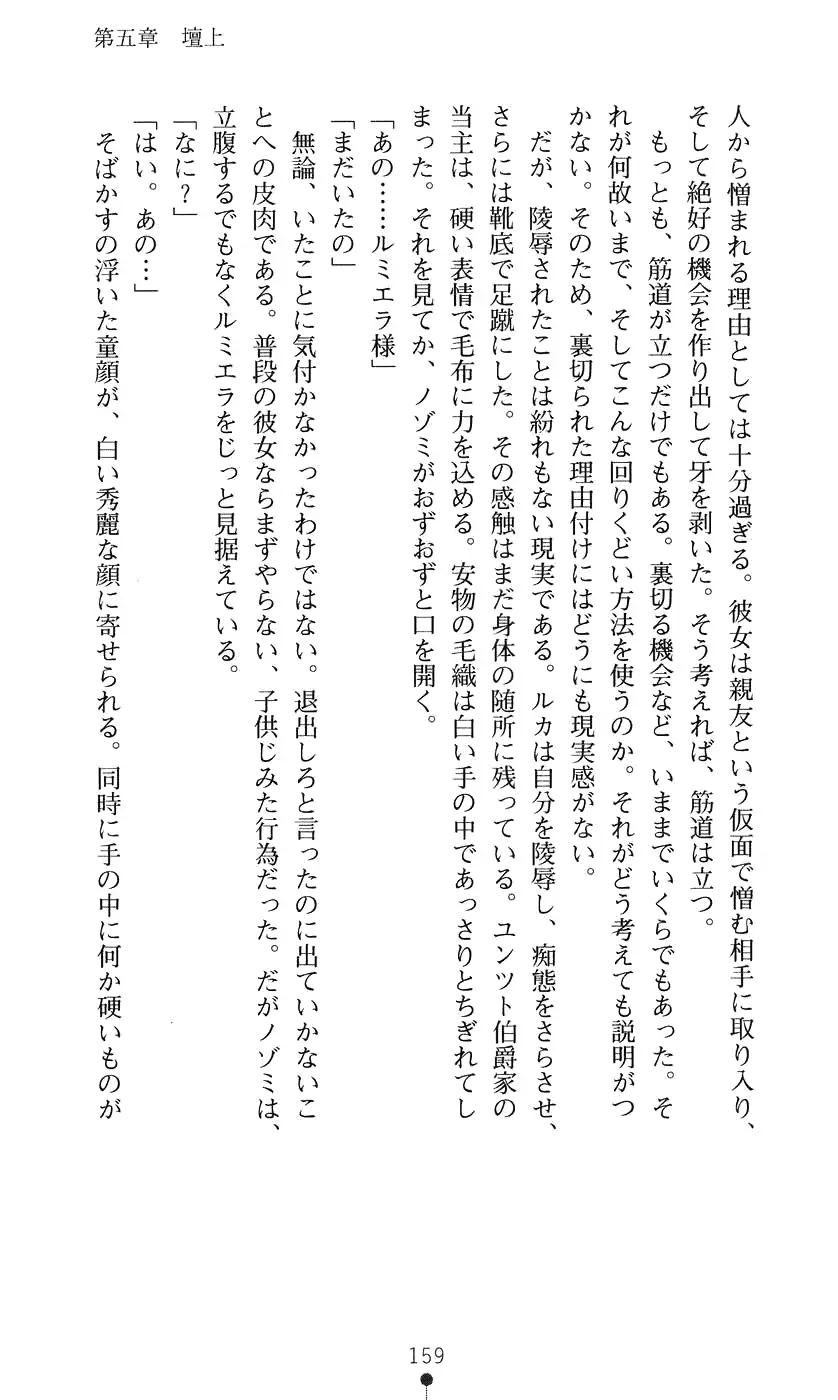 第五章　壇上
人から憎まれる理由としては十分過ぎる。彼女は親友という仮面で憎む相手に取り入り、
そして絶好の機会を作り出して牙を剥いた。そう考えれば、筋道は立つ。
　もっとも、筋道が立つだけでもある。裏切る機会など、いままでいくらでもあった。そ
れが何故いまで、そしてこんな回りくどい方法を使うのか。それがどう考えても説明がつ
かない。そのため、裏切られた理由付けにはどうにも現実感がない。
　だが、陵辱されたことは紛れもない現実である。ルカは自分を陵辱し、痴態をさらさせ、
さらには靴底で足蹴にした。その感触はまだ身体の随所に残っている。ユンツト伯爵家の
当主は、硬い表情で毛布に力を込める。安物の毛織は白い手の中であっさりとちぎれてし
まった。それを見てか、ノゾミがおずおずと口を開く。
「あの……ルミエラ様」
「まだいたの」
　無論、いたことに気付かなかったわけではない。退出しろと言ったのに出ていかないこ
とへの皮肉である。普段の彼女ならまずやらない、子供じみた行為だった。だがノゾミは、
立腹するでもなくルミエラをじっと見据えている。
「なに？」
「はい。あの…」
　そばかすの浮いた童顔が、白い秀麗な顔に寄せられる。同時に手の中に何か硬いものが
159